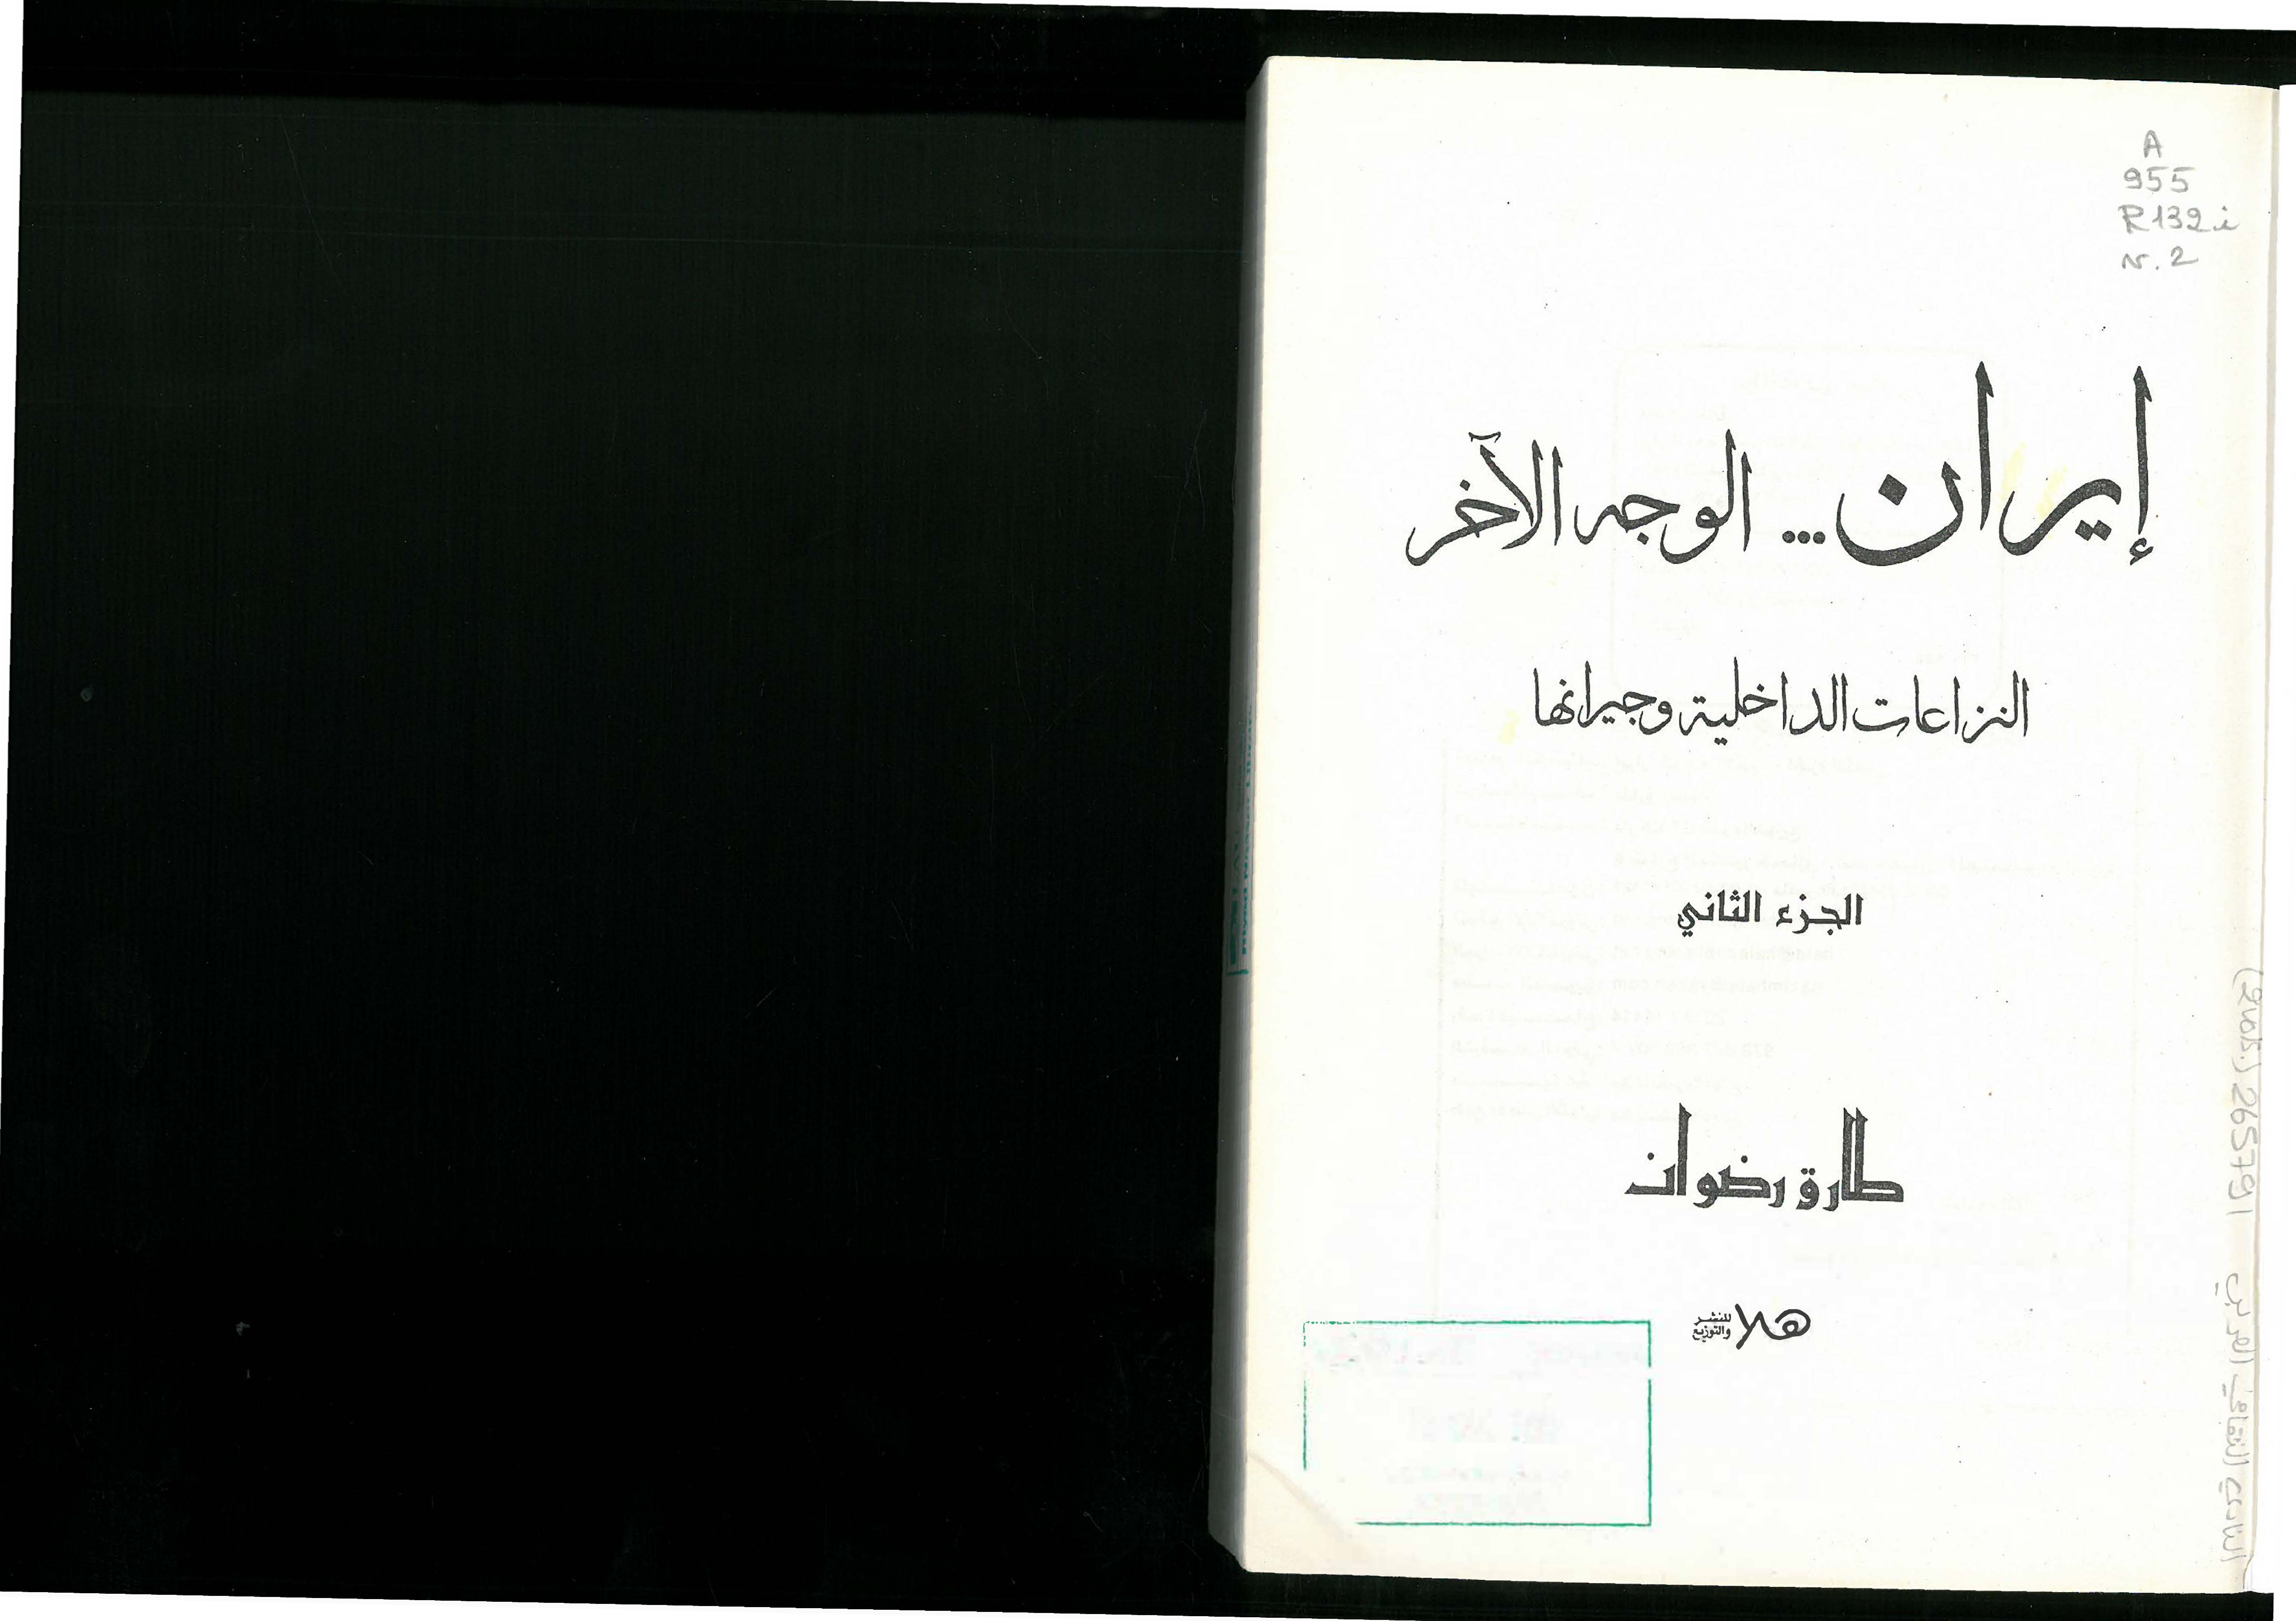 A
955
R132i
v.2
إيران... الوجه الآخر
النزاعات الداخلية وجيرانها
الجزء الثاني
طارق رضوان
هلا للنشر
والتوزيع
النادي الثقافي العربي